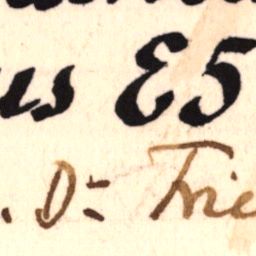 us E5
. D= Trie